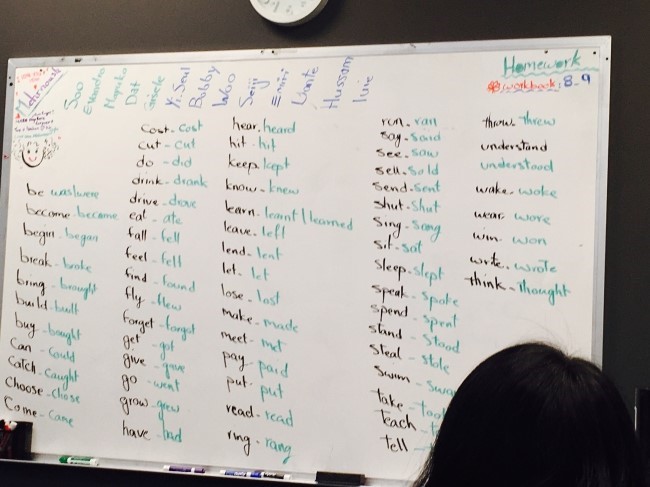 Homework
workbook: 8-9
Soo
Dat
Yi.Seul
Bobby
Woo
Seiji
Hussam
be was/were
become - became
begin - began
break - broke
bring - brought
build - built
buy - bought
can - could
catch - caught
choose - chose
Come - came
cost - cost
cut - cut
do - did
drink - drank
drive - drove
eat - ate
fall - fell
feel - felt
find - found
fly - flew
forget - forgot
get - got
give - gave
go - went
grow - grew
have - had
hear - heard
hit - hit
keep - kept
know - knew
learn - learnt / learned
leave - left
lend - lent
let - let
lose - lost
make - made
meet - met
pay - paid
put - put
read - read
ring - rang
run - ran
say - said
see - saw
sell - sold
send - sent
shut - shut
sing - sang
sit - sat
sleep - slept
speak - spoke
spend - spent
stand - stood
steal - stole
swim -
take -
teach
tell -
throw - threw
understand
understood
wake - woke
wear - wore
win - won
write - wrote
think - thought